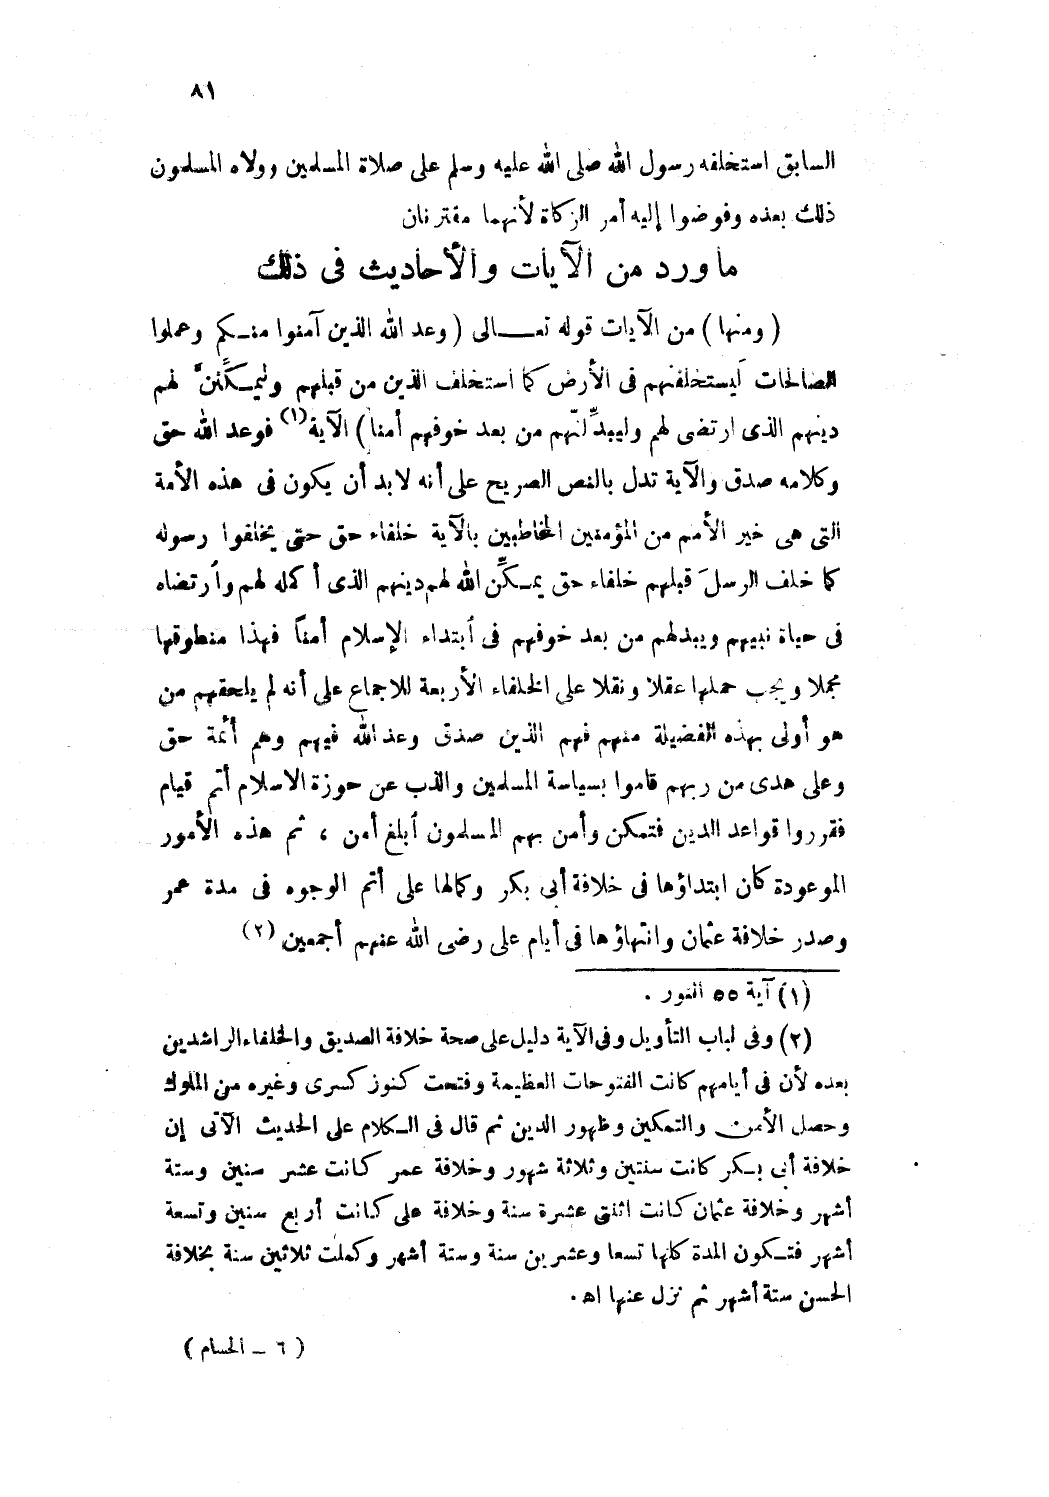 ٨١
السابق استخلفه رسول الله صلى الله عليه وسلم على صلاة المسلمين وولاه المسلمون
ذلك بعده وفوضوا إليه أمر الزكاة لأنهما مقترنان
ما ورد من الآيات والأحاديث فى ذلك
( ومنها ) من الآيات قوله تعــالى ( وعد الله الذين آمنوا منكم وعملوا
الصالحات لَيستخلفنهم فى الأرض كما استخلف الذين من قبلهم وليمكِّننَّ لهم
دينهم الذى ارتضى لهم وليبدِّلنّهم من بعد خوفهم أمنا ) الآية (١) فوعد الله حق
وكلامه صدق والآية تدل بالنص الصريح على أنه لابد أن يكون فى هذه الأمة
التى هى خير الأمم من المؤمنين المخاطبين بالآية خلفاء حق حتى يخلفوا رسوله
كما خلف الرسلَ قبلهم خلفاء حق يمكِّن الله لهم دينهم الذى أكمله لهم وأرتضاه
فى حياة نبيهم ويبدلهم من بعد خوفهم فى أبتداء الإسلام أمناً فهذا منطوقها
مجملا ويجب حملها عقلا ونقلا على الخلفاء الأربعة للاجماع على أنه لم يلحقهم من
هو أولى بهذه الفضيلة منهم فهم الذين صدق وعد الله فيهم وهم أئمة حق
وعلى هدى من ربهم قاموا بسياسة المسلمين والذب عن حوزة الاسلام أتم قيام
فقرروا قواعد الدين فتمكن وأمن بهم المسلمون أبلغ أمن ، ثم هذه الأمور
الموعودة كان ابتداؤها فى خلافة أبى بكر وكمالها على أتم الوجوه فى مدة عمر
وصدر خلافة عثمان وانتهاؤها فى أيام على رضى الله عنهم أجمعين (٢)
(١) آية ٥٥ النور .
(٢) وفى لباب التأويل وفى الآية دليل على صحة خلافة الصديق والخلفاء الراشدين
بعده لأن فى أيامهم كانت الفتوحات العظيمة وفتحت كنوز كسرى وغيره من الملوك
وحصل الأمن والتمكين وظهور الدين ثم قال فى الكلام على الحديث الآتى إن
خلافة أبى بكر كانت سنتين وثلاثة شهور وخلافة عمر كانت عشر سنين وستة
أشهر وخلافة عثمان كانت اثنتى عشرة سنة وخلافة على كانت أربع سنين وتسعة
أشهر فتكون المدة كلها تسعا وعشرين سنة وستة أشهر وكملت ثلاثين سنة بخلافة
الحسن ستة أشهر ثم نزل عنها اه .
( ٦ ــ الحسام )